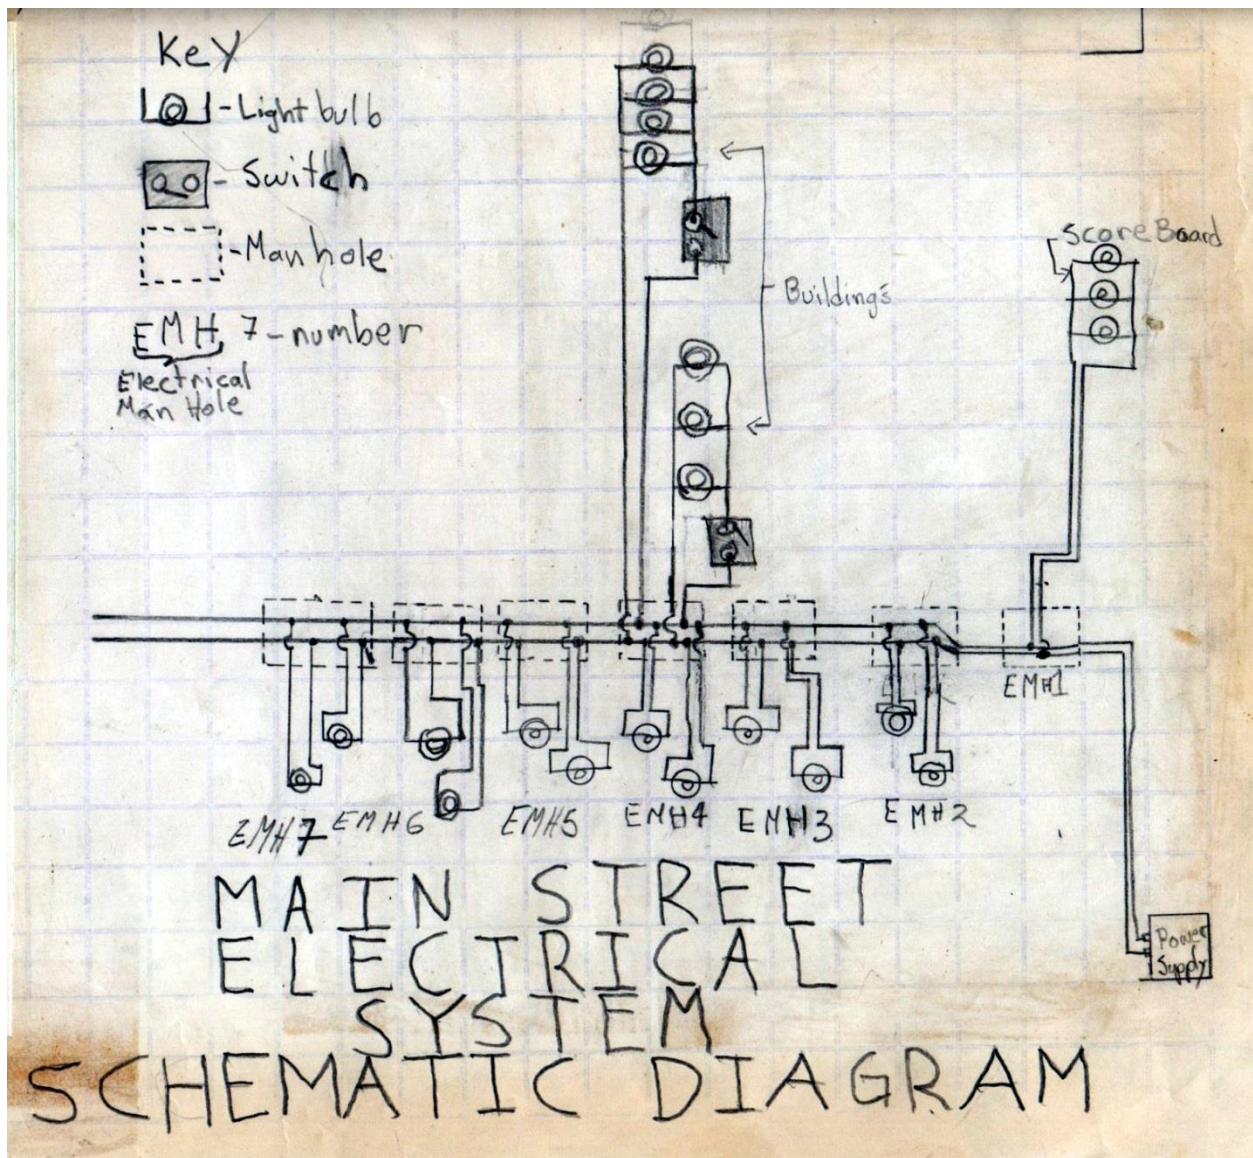 Key
-Light bulb
-Switch
-Man hole
EMH 7-number
Electrical
Man Hole
Buildings
Score Board
EMH1
EMH7
EMH6
EMH5
EMH4
EMH3
EMH2
Power
Supply
MAIN STREET
ELECTRICAL
SYSTEM
SCHEMATIC DIAGRAM